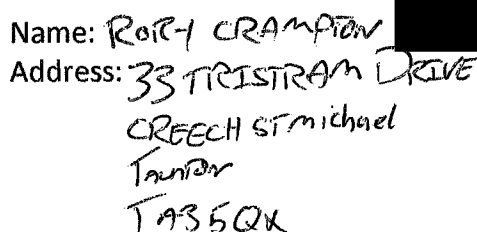 Name: RORY CRAMPTON
Address: 33 TRISTRAM DRIVE
CREECH ST michael
TAUNTON
TA3 5QX